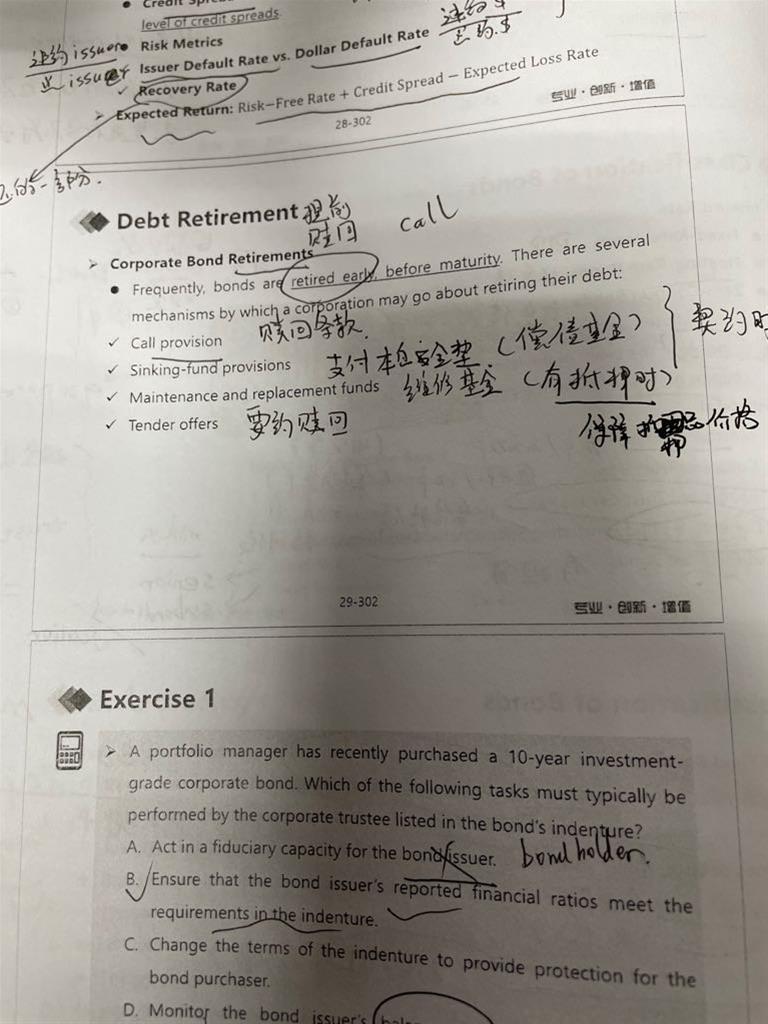 level of credit spreads.
违约$
总约$
违约issuer
总issuer
Risk Metrics
Issuer Default Rate vs. Dollar Default Rate
✓ Recovery Rate
➢ Expected Return: Risk−Free Rate + Credit Spread − Expected Loss Rate
专业·创新·增值
28-302
Debt Retirement 提前
赎回 call
➢ Corporate Bond Retirements
● Frequently, bonds are retired early, before maturity. There are several
mechanisms by which a corporation may go about retiring their debt:
✓ Call provision 赎回条款.
✓ Sinking-fund provisions 支付本息安全垫 (偿债基金) } 契约时
✓ Maintenance and replacement funds 维修基金 (有抵押时)
✓ Tender offers 要约赎回
保障 价格
29-302 专业·创新·增值
Exercise 1
➢ A portfolio manager has recently purchased a 10-year investment-
grade corporate bond. Which of the following tasks must typically be
performed by the corporate trustee listed in the bond's indenture?
A. Act in a fiduciary capacity for the bond issuer. bondholder.
B. Ensure that the bond issuer's reported financial ratios meet the
requirements in the indenture.
C. Change the terms of the indenture to provide protection for the
bond purchaser.
D. Monitor the bond issuer's